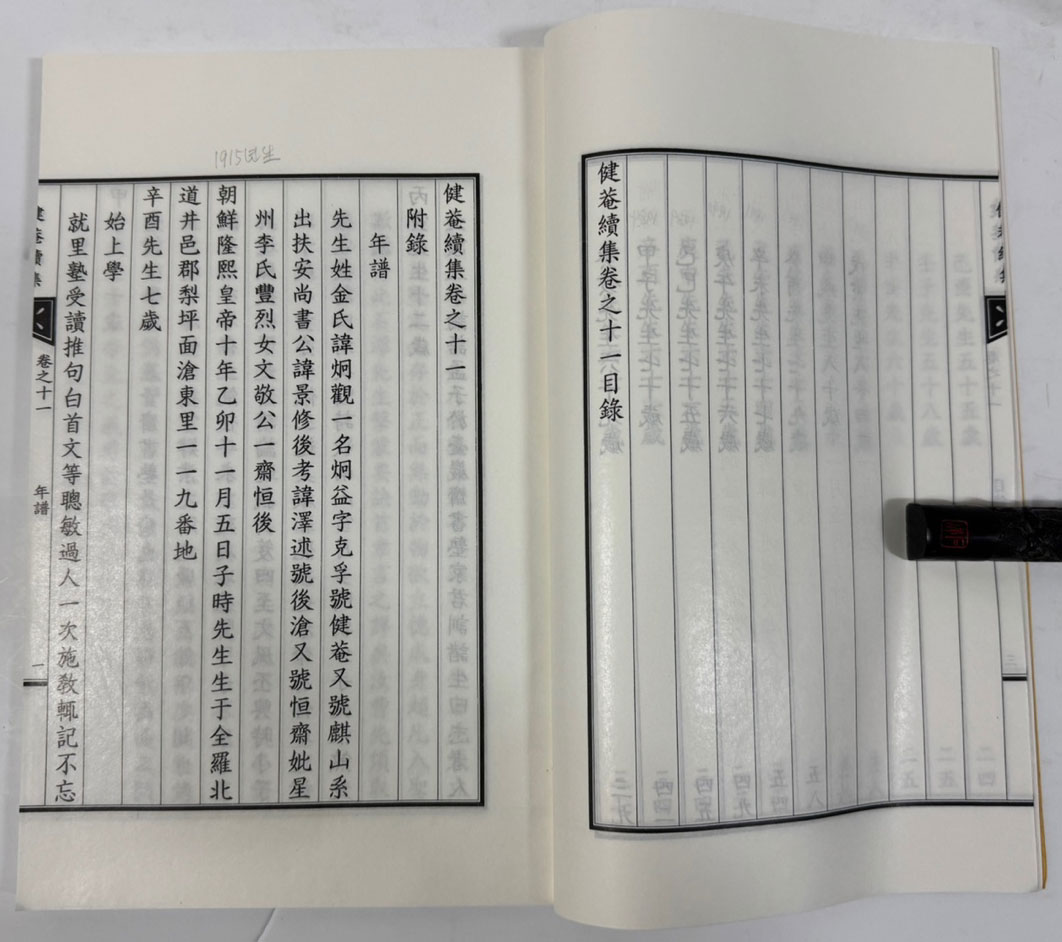 健菴續集卷之十一目錄
1915년生
健菴續集卷之十一
附錄
年譜
先生姓金氏諱炯觀一名炯益字克孚號健菴又號麒山系
出扶安尚書公諱景修後考諱澤述號後滄又號恒齋妣星
州李氏豐烈女文敬公一齋恒後
朝鮮隆熙皇帝十年乙卯十一月五日子時先生生于全羅北
道井邑郡梨坪面滄東里一一九番地
辛酉先生七歲
始上學
就里塾受讀推句白首文等聰敏過人一次施教輒記不忘
健菴續集
卷之十一
年譜
一